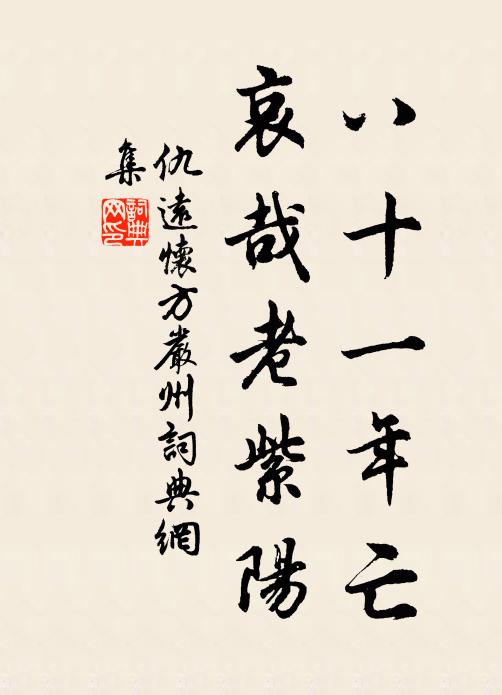 八十一年亡
哀哉老紫陽
仇遠懷方嚴州詞典網
集
詞典
网印